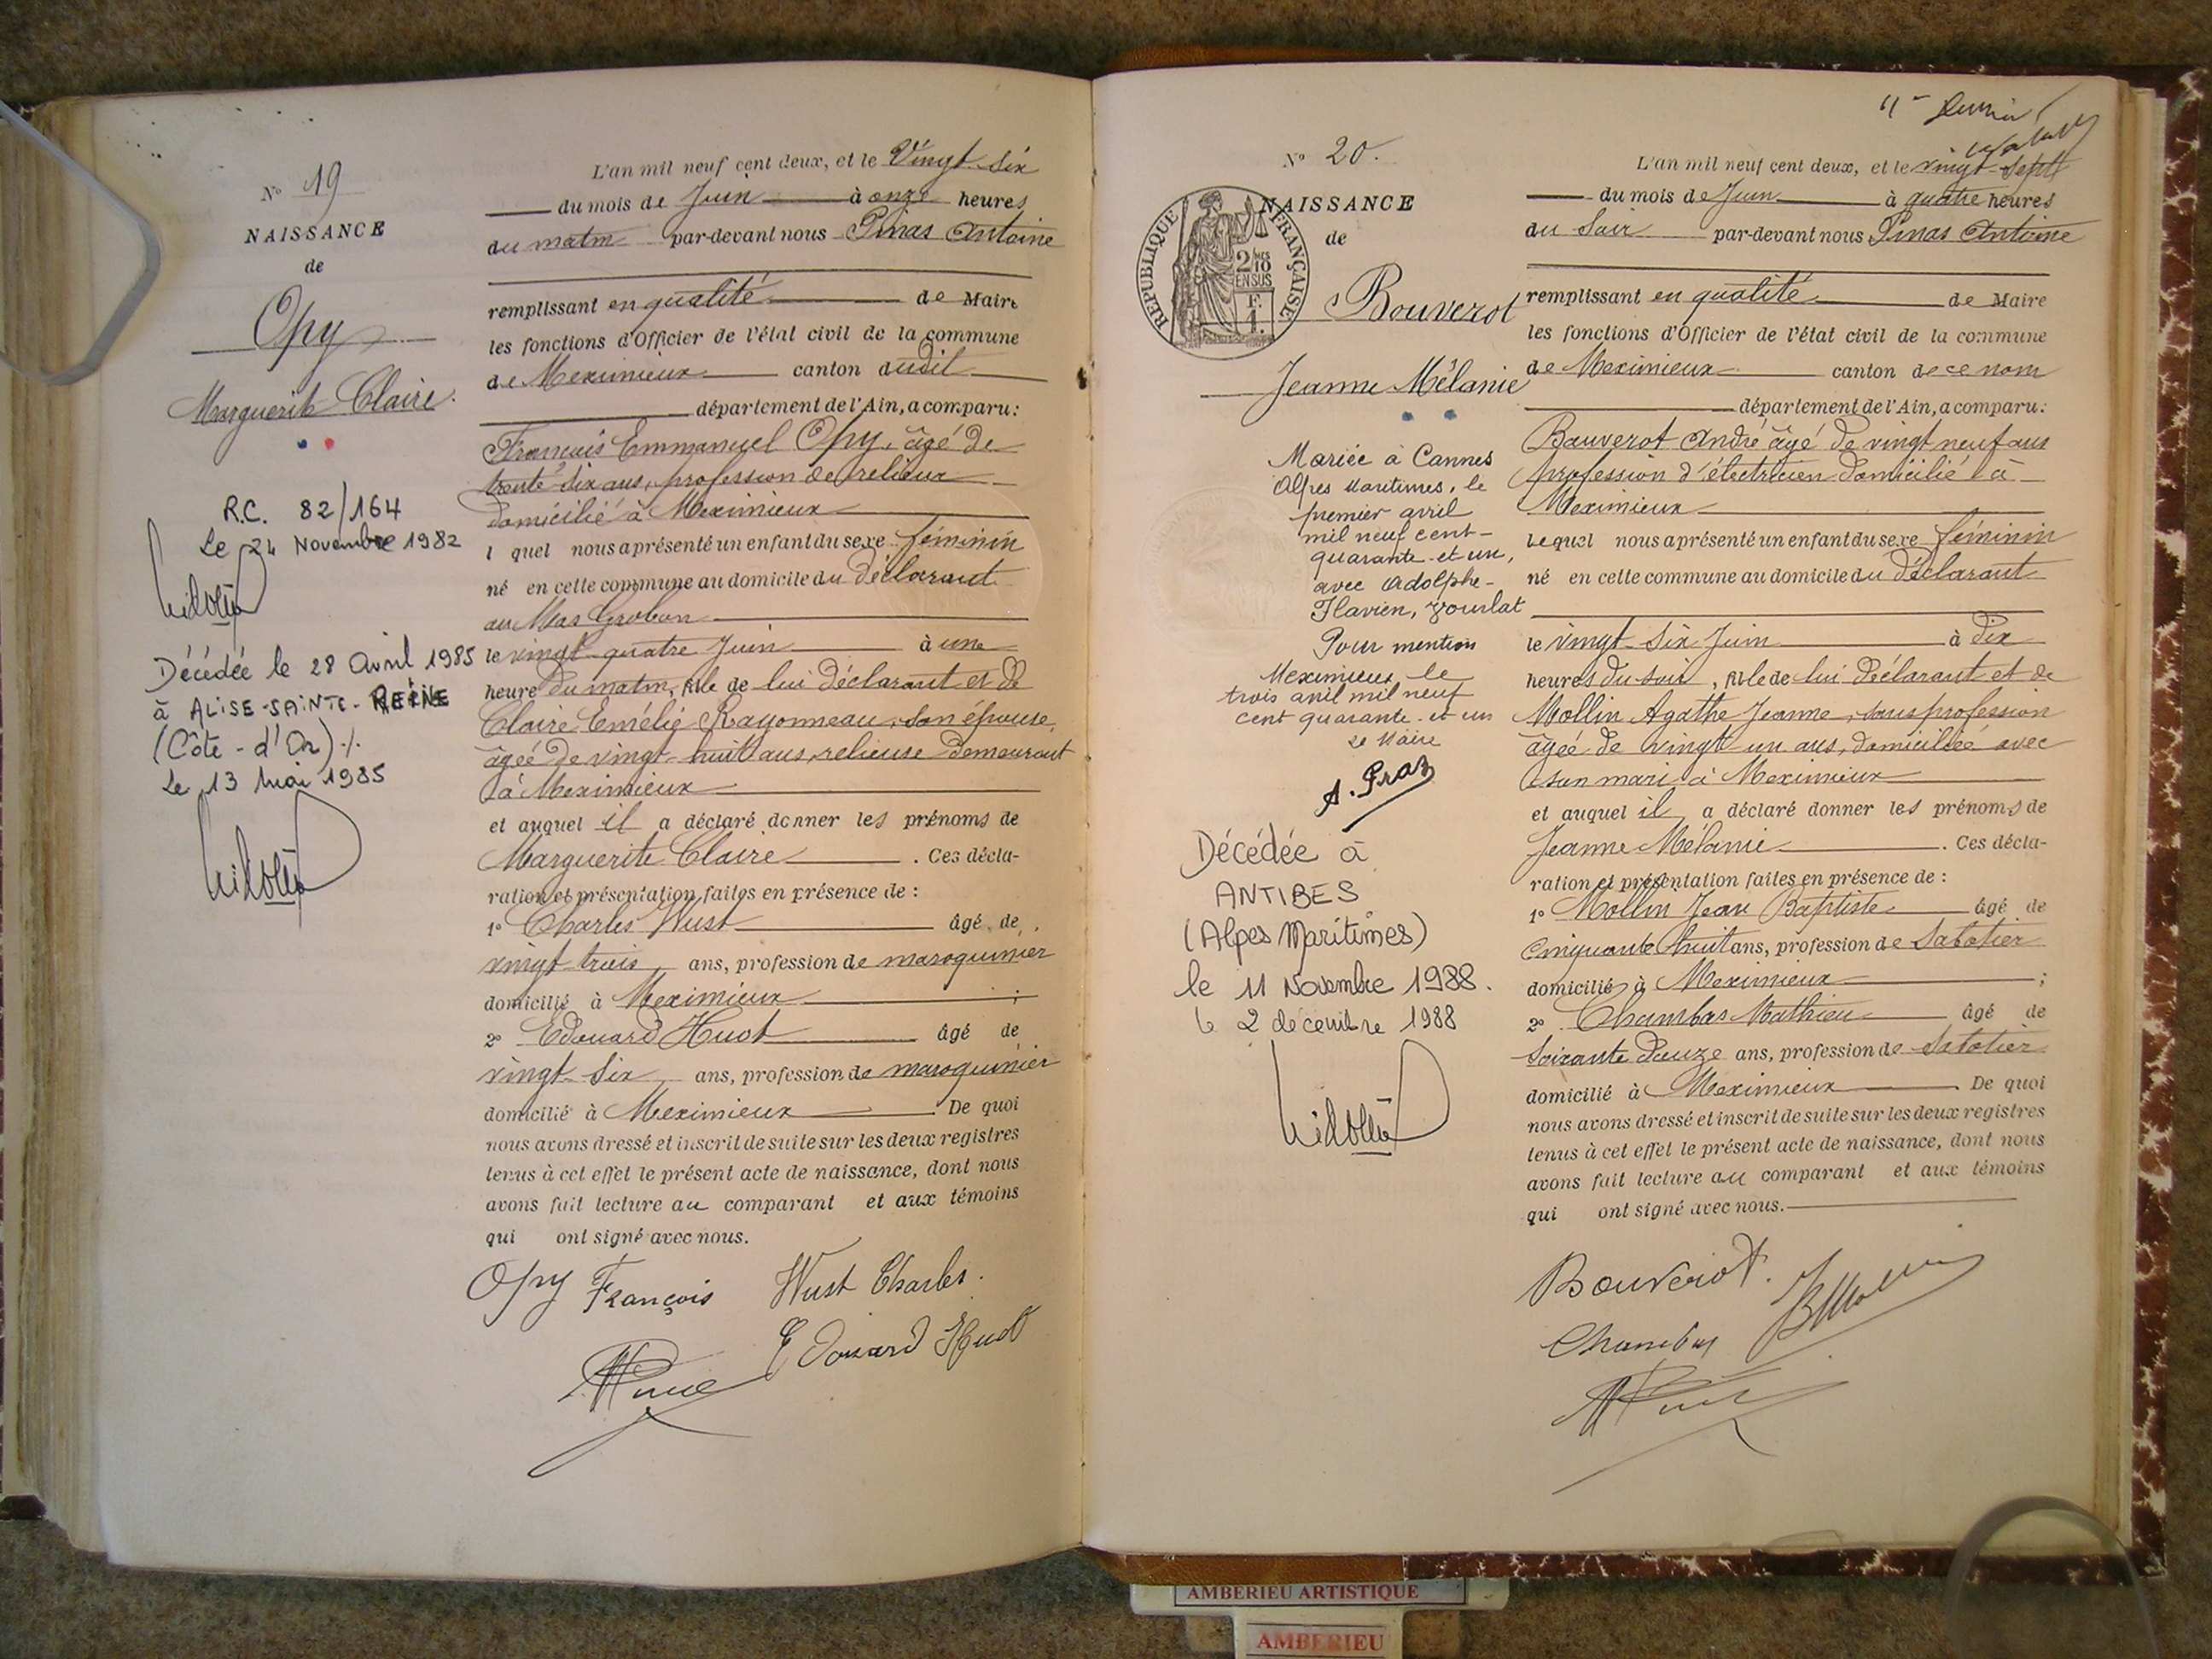 N° 19
NAISSANCE
de
Opy
Marguerite Claire.
R.C. 82/164
Le 24 Novembre 1982
Décédée le 28 Avril 1985
à ALISE-SAINTE-REINE
(Côte-d'Or)./.
Le 13 Mai 1985
L'an mil neuf cent deux, et le Vingt-six
du mois de Juin à onze heures
du matin par-devant nous Pinas Antoine
remplissant en qualité de Maire
les fonctions d'Officier de l'état civil de la commune
de Meximieux canton dudit
département de l'Ain, a comparu:
François Emmanuel Opy, âgé de
trente-six ans, profession de relieur
domicilié à Meximieux
l quel nous a présenté un enfant du sexe féminin
né en cette commune au domicile du Déclarant
au Mas Grobon
le vingt-quatre Juin à une
heure du matin, fille de lui Déclarant et de
Claire Emélie Rayonneau, son épouse,
âgée de vingt-huit ans, relieuse demeurant
à Meximieux
et auquel il a déclaré donner les prénoms de
Marguerite Claire. Ces décla-
ration et présentation faites en présence de :
1° Charles Wust âgé de
vingt trois ans, profession de maroquinier
domicilié à Meximieux ;
2° Edouard Huot âgé de
vingt-six ans, profession de maroquinier
domicilié à Meximieux. De quoi
nous avons dressé et inscrit de suite sur les deux registres
tenus à cet effet le présent acte de naissance, dont nous
avons fait lecture au comparant et aux témoins
qui ont signé avec nous.
Opy François Wust Charles.
Edouard Huot
N° 20.
NAISSANCE
de
RÉPUBLIQUE FRANÇAISE
2/10
EN SUS
F.
1.
Bouverot
Jeanne Mélanie
Mariée à Cannes
Alpes Maritimes, le
premier avril
mil neuf cent-
quarante-et-un,
avec Adolphe-
Flavien, Yourlat
Pour mention
Meximieux le
trois avril mil neuf
cent quarante-et un
Le Maire
A. Praz
Décédée à
ANTIBES
(Alpes Maritimes)
le 11 Novembre 1988.
le 2 décembre 1988
L'an mil neuf cent deux, et le vingt-sept
du mois de Juin à quatre heures
du Soir par-devant nous Pinas Antoine
remplissant en qualité de Maire
les fonctions d'Officier de l'état civil de la commune
de Meximieux canton de ce nom
département de l'Ain, a comparu:
Bouverot André âgé de vingt neuf ans
profession d'électricien domicilié à
Meximieux
Lequel nous a présenté un enfant du sexe féminin
né en cette commune au domicile du Déclarant
le vingt-six Juin à Dix
heures du soir, fille de lui Déclarant et de
Mollin Agathe Jeanne, sans profession
âgée de vingt un ans, domiciliée avec
son mari à Meximieux
et auquel il a déclaré donner les prénoms de
Jeanne Mélanie. Ces décla-
ration et présentation faites en présence de :
1° Mollin Jean Baptiste âgé de
cinquante huit ans, profession de Sabotier
domicilié à Meximieux ;
2° Chambas Mathieu âgé de
soixante Douze ans, profession de Sabotier
domicilié à Meximieux. De quoi
nous avons dressé et inscrit de suite sur les deux registres
tenus à cet effet le présent acte de naissance, dont nous
avons fait lecture au comparant et aux témoins
qui ont signé avec nous.
Bouverot.
Chambas
AMBERIEU ARTISTIQUE
AMBERIEU